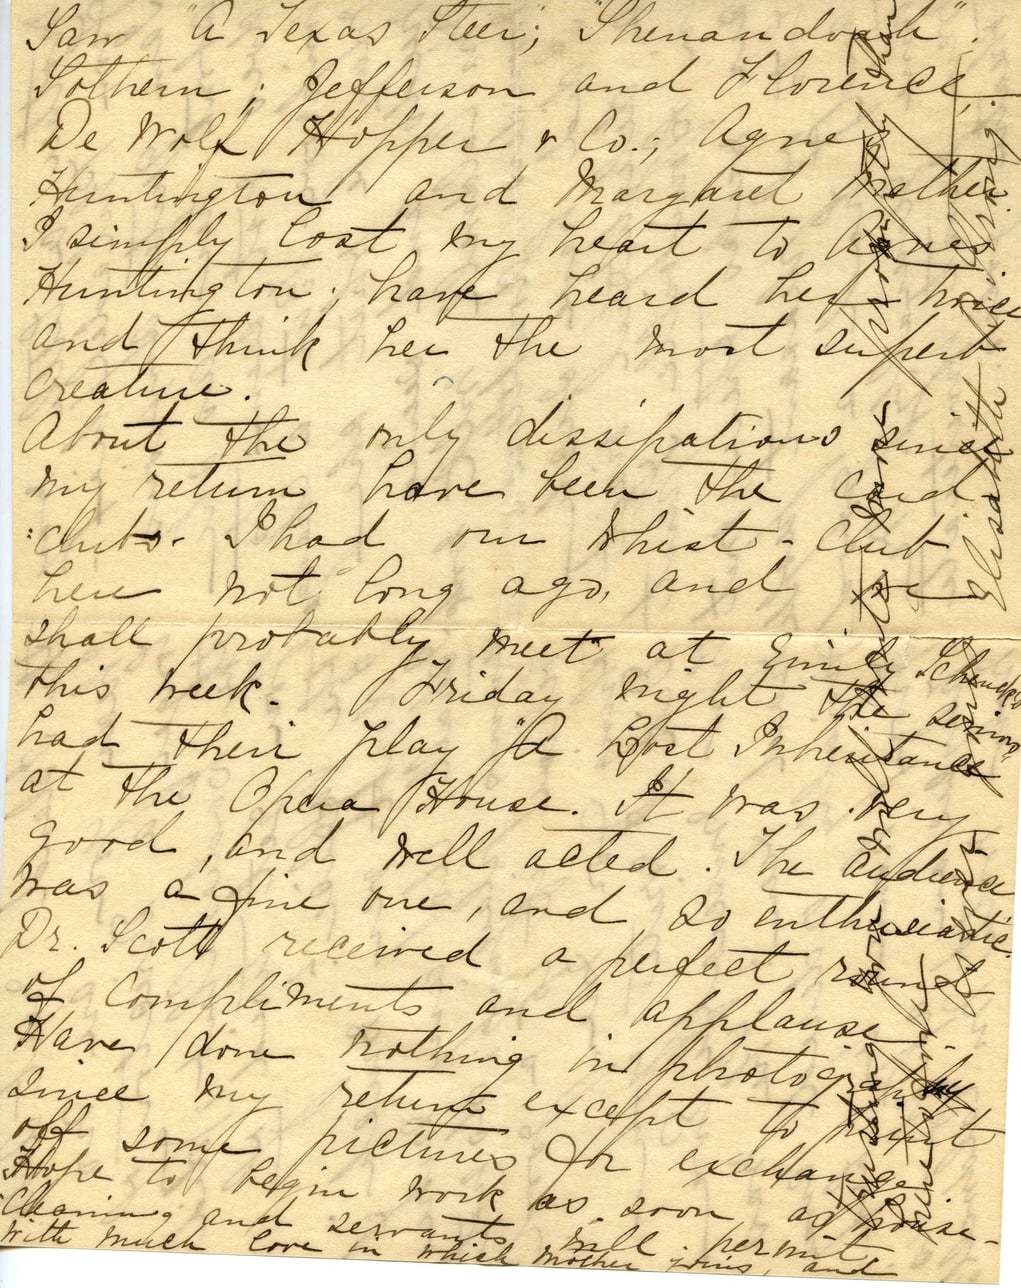 Saw "A Texas Steer"; "Shenandoah";
Sothern; Jefferson and Florence;
De Wolf Hopper & Co.; Agnes
Huntington and Margaret Mather.
I simply lost my heart to Agnes
Huntington; have heard her twice
and think her the most superb
creature.
About the only dissipations since
my return have been the card
clubs. I had our Whist-Club
here not long ago, and we
shall probably meet at Emily Schenck's
this week. Friday night the seniors
had their play "A Lost Inheritance"
at the Opera House. It was very
good, and well acted. The audience
was a fine one, and so enthusiastic.
Dr. Scott received a perfect round
of compliments and applause.
Have done nothing in photography
since my return except to print
off some pictures for exchange.
Hope to begin work as soon as house-
cleaning and servants will permit.
With much love in which mother joins, and
arrange your
As ever
Elizabeth